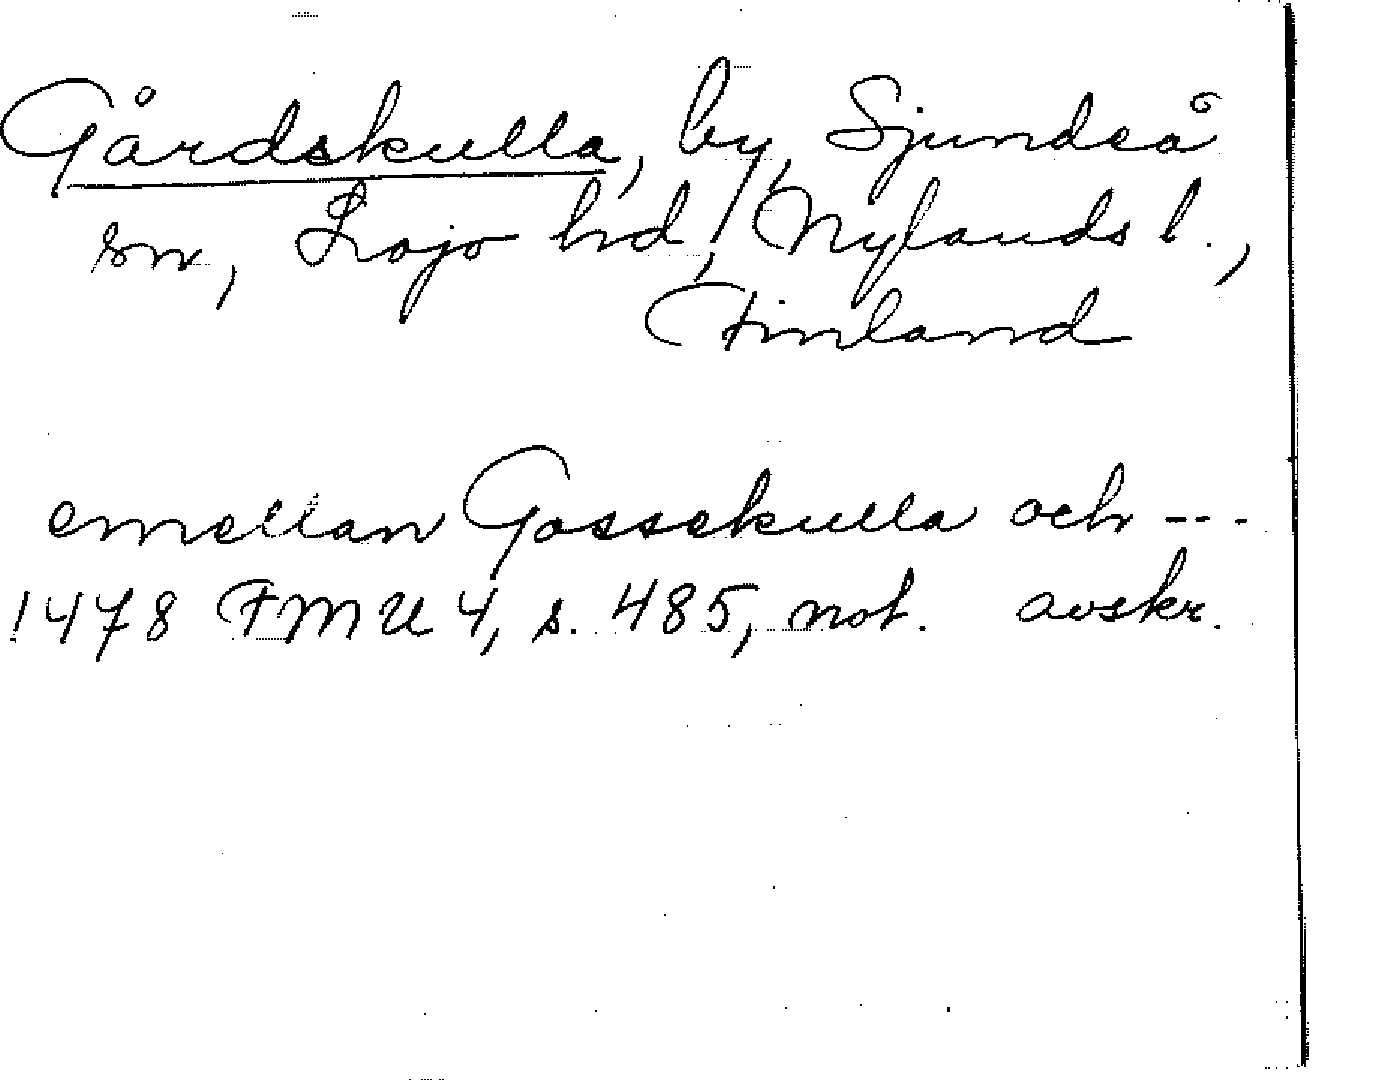 Gårdskulla, by, Sjundeå
sn, Lojo hd, Nylands l.,
Finland
emellan Gossekulla och ---
1478 FMU 4, s. 485, not. avskr.